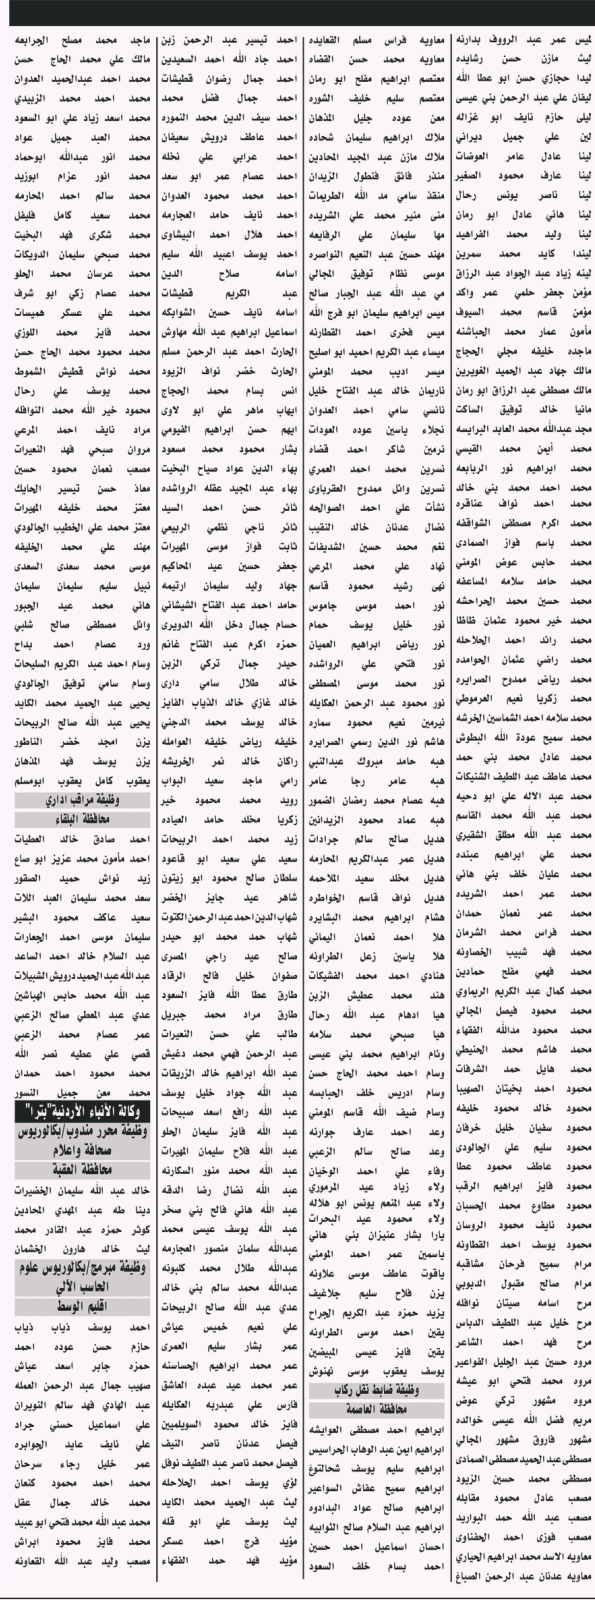 لميس عمر عبد الرووف بدارنه
ليث مازن حسن رشايده
ليدا حجازي حسن ابو عطا الله
ليفان علي عبد الرحمن بني عيسى
ليلى حازم نايف ابو غزاله
لين علي جميل ديراني
لينا عادل عامر العوضات
لينا عارف محمود الصغير
لينا ناصر يونس رحال
لينا هاني عادل ابو رمان
لينا وليد محمد الفراهيد
ليندا كايد محمد سمرين
لينه زياد عبد الجواد عبد الرزاق
مؤمن جعفر حلمي عمر واكد
مؤمن قاسم محمد السيوف
مأمون عمار محمد الحباشنه
ماجده خليفه مجلي الحجاج
مالك جهاد عبد الحميد الغويرين
مالك مصطفى عبد الرزاق ابو رمان
مانيا خالد توفيق الساكت
مجد عبدالله محمد العابد البرايسه
محمد أيمن محمد القيسي
محمد ابراهيم نور الربابعه
محمد احمد محمد بني خالد
محمد احمد نواف عناقره
محمد اكرم مصطفى الشواقفه
محمد باسم فواز الصمادي
محمد حابس عوض المومني
محمد حامد سلامه المساعفه
محمد حسين محمد الحراحشه
محمد خير محمود عثمان ظاظا
محمد رائد احمد الحلاحله
محمد راضي عثمان الحوامده
محمد رياض ممدوح الصرايره
محمد زكريا نعيم العرموطي
محمد سلامه احمد الشماسين الخرشه
محمد سميح عودة الله البطوش
محمد عادل محمد بني حمد
محمد عاطف عبد اللطيف الشنيكات
محمد عبد الاله علي ابو دحيه
محمد عبد الله محمد القاسم
محمد عبد الله مطلق الشقيري
محمد علي ابراهيم عبنده
محمد عليان خلف بني هاني
محمد عمر احمد الشريده
محمد عمر نعمان حمدان
محمد فراس محمد الشرمان
محمد فهد شبيب الخصاونه
محمد فهمي مفلح حمادين
محمد كمال عبد الكريم الريماوي
محمد محمود فيصل المجالي
محمد محمود مدالله الفقهاء
محمد هاشم محمد الحنيطي
محمد هايل حمد الشرفات
محمود احمد بخيتان الصهيبا
محمود خالد محمود خليفه
محمود سفيان خليل خرفان
محمود سليم علي الجالودي
محمود عاطف محمود عطا
محمود فايز ابراهيم الرقب
محمود مطاوع محمد الحسبان
محمود نايف محمود الروسان
محمود يوسف احمد القطاونه
مرام سميح فرحان مشاقبه
مرام صالح مقبول الدبوبي
مرح اسامه صيتان نوافله
مرح خليل عبد اللطيف الدباس
مرح فهد احمد الشاعر
مروه حسين عبد الجليل الفواعير
مروه محمد فتحي ابو عيشه
مروه مشهور تركي عوض
مريم فضل الله عيسى خوالده
مشهور فاروق مشهور المجالي
مصطفى عبد الحميد مصطفى الصمادي
مصطفى محمد حسين الزيود
مصعب عادل محمود مقابله
مصعب عبد الله حمد البواريد
مصعب فوزى احمد الحفناوى
معاويه الاسد محمد ابراهيم الحياري
معاويه عدنان عبد الرحمن الصباغ
معاويه فراس مسلم القعايده
معاويه محمد حسن القضاه
معتصم ابراهيم مفلح ابو رمان
معتصم سليم خليف الشوره
معن عوده جليل المذهان
ملاك ابراهيم سليمان شحاده
ملاك مازن عبد المجيد المحادين
منذر فائق فنطول الزيدان
منقذ سامي مد الله الطريمات
منى منير محمد علي الشريده
مها سليمان علي الرفايعه
مهند حسين عبد النعيم النواصره
موسى نظام توفيق المجالي
مي عبد الله عبد الجبار صالح
ميس ابراهيم سليمان ابو فرج الله
ميس فخرى احمد القطارنه
ميساء عبد الكريم احميد ابو اصليح
ميسر اديب محمد المومني
ناريمان خالد عبد الفتاح خليل
نانسي سامي احمد العدوان
نجلاء ياسين عوده العودات
نرمين شاكر احمد قضاه
نسرين محمد احمد العمري
نسرين وائل ممدوح العقرباوى
نشأت علي احمد الصوالحه
نضال عدنان خالد النقيب
نغم محمد حسين الشديفات
نهاد علي محمد المرعي
نهى رشيد محمود قاسم
نور احمد موسى جاموس
نور خليل يوسف حمام
نور رياض ابراهيم العميان
نور فتحي علي الرواشده
نور محمد موسى المصطفى
نور محمود عبد الرحمن العكايله
نيرمين نعيم محمود سماره
هاشم نور الدين رسمي الصرايره
هبه حامد مبروك عبدالنبي
هبه عامر رجا عامر
هبه عصام محمد رمضان الضمور
هبه عماد محمود الزيدانين
هديل صالح سالم جرادات
هديل عمر عبدالكريم المحارمه
هديل مخلد سعيد الملاحمه
هديل نواف قاسم الخواطره
هشام ابراهيم محمد البشايره
هلا احمد نعمان اليماني
هلا ياسين زعل الطراونه
هنادي احمد محمد الفشيكات
هند محمد عطيش الزبن
هيا ادهام عبد الله رحال
هيا صبحي محمد سلامه
وئام ابراهيم محمد بني عيسى
وسام احمد محمد الحاج حسن
وسام ادريس خلف الحبابسه
وسام ضيف الله قاسم المومني
وعد احمد عارف جوارنه
وعد صالح سالم الزعبي
وفاء علي احمد الوخيان
ولاء زياد عيد المرموري
ولاء عبد المنعم يونس ابو هلاله
ولاء محمود عيد البحرات
يارا بشار عنيزان بني هاني
ياسمين عمر احمد المومني
ياقوت عاطف موسى علاونه
يزن فلاح سليم جلاغيف
يزيد حمزه عبد الكريم الجراح
يقين احمد موسى الطراونه
يقين فايز عيسى المبيضين
يوسف يعقوب موسى نهنوش
وظيفة ضابط نقل ركاب
محافظة العاصمة
ابراهيم احمد مصطفى العوايشه
ابراهيم ايمن عبد الوهاب الحراسيس
ابراهيم سليم يوسف شحالتوغ
ابراهيم سميح عفاش السواعير
ابراهيم صالح عواد البدادوه
ابراهيم عبد السلام صالح الثوابيه
احسان اسماعيل احمد حسين
احمد بسام خلف السعود
احمد تيسير عبد الرحمن زبن
احمد جاد الله احمد السعيدين
احمد جمال رضوان قطيشات
احمد جمال فضل محمد
احمد سيف الدين محمد النموره
احمد عاطف درويش سعيفان
احمد عرابي علي نخله
احمد عصام عمر ابو سعد
احمد محمد محمود العدوان
احمد نايف حامد العجارمه
احمد هلال احمد البيشاوى
احمد يوسف اعبيد الله سليم
اسامه صلاح الدين
عبد الكريم قطيشات
اسامه نايف حسين الشوابكه
اسماعيل ابراهيم عبد الله مهاوش
الحارث احمد عبد الرحمن مسلم
الحارث خضر نواف الزيود
انس بسام محمد الحجاج
ايهاب ماهر علي ابو لاوى
ايهم حسن ابراهيم الفيومي
بشار محمود محمد مسعود
بهاء الدين عواد صباح البخيت
بهاء عبد المجيد عقله الرواشده
ثائر حسن احمد السيد
ثائر ناجي نظمي الربيعي
ثابت فواز موسى المهيرات
جعفر حسين عيد المحاكيم
جهاد وليد سليمان ارتيمه
حامد احمد عبد الفتاح الشيشاني
حسام جمال دخل الله الدويرى
حمزه اكرم عبد الفتاح غانم
حيدر جمال تركي الزبن
خالد طلال سامي دارى
خالد غازي خالد الذياب الفايز
خالد يوسف محمد الدجني
خليفه رياض خليفه العوامله
راكان خالد نمر الخريشه
رامي ماجد سعيد البواب
رويد محمد محمود خير
زكريا مخلد حامد العياده
زيد محمد احمد الربيحات
سعيد علي سعيد ابو قاعود
سلطان صالح محمود ابو زيتون
شاهر عيد جايز الخضر
شهاب الدين احمد عبد الرحمن الكتوت
شهاب حمد محمد ابو حيدر
صالح عيد راجي المصرى
صفوان خليل فالح الرقاد
طارق عطا الله فايز السعود
طارق مراد محمد جبريل
طالب علي حسن النعيرات
عبد الرحمن فهمي محمد دغيش
عبد الله ابراهيم خالد الزريقات
عبد الله جواد خليل يوسف
عبد الله رافع اسعد صبيحات
عبد الله فايز سليمان الحلو
عبد الله فلاح سليمان المهيرات
عبد الله محمد منور السكارنه
عبد الله نضال رضا الدقه
عبد الله هاني فالح بني صخر
عبد الله يوسف عيسى محمد
عبدالله سلمان منصور العجارمه
عبدالله طلال محمد كلبونه
عبدالله محمد سالم بني خالد
عدي عبد الله صالح الربيحات
علي نعيم خميس عياش
عمر بشار سليم العمرى
عمر محمد ابراهيم الحساسنه
عمر محمد عيد عبده العاشق
فارس علي عبدربه العكايله
فايز خالد محمود السويلميين
فيصل عدنان ناصر النيف
فيصل محمد ناصر عبد اللطيف نوفل
لؤي يوسف احمد الحلاحله
ليث عبد الحميد محمد الكايد
ليث يوسف علي ابو قله
مؤيد فرج احمد عسكر
مؤيد فهد حمد الفقهاء
ماجد محمد مصلح الجرابعه
مالك علي محمد الحاج حسن
محمد احمد عبدالحميد العدوان
محمد احمد محمد الزبيدي
محمد اسعد زياد علي ابو السعود
محمد العبد جميل عواد
محمد انور عبدالله ابوحماد
محمد انور عزام ابوزيد
محمد سالم احمد المحارمه
محمد سعيد كامل فليفل
محمد شكرى فهد البخيت
محمد صبحي سليمان الدويكات
محمد عرسان محمد الحلو
محمد عصام زكي ابو شرف
محمد علي عسكر هميسات
محمد فايز محمد اللوزي
محمد محمود محمد الحاج حسن
محمد نواش قطيش الشموط
محمد يوسف علي رحال
محمود خير الله محمد النوافله
مراد نايف احمد المرعي
مروان صبحي فهد النعيرات
مصعب نعمان محمود حسين
معاذ حسن تيسير الحايك
معتز محمد خليفه المهيرات
معتز محمد علي الخطيب الجالودي
مهند علي محمد الخليفه
موسى محمد سعدى السعدى
نبيل سليم سليمان سليمان
هاني محمد عيد الجبور
وائل مصطفى صالح شلبي
ورد عصام احمد بداح
وسام احمد عبد الكريم السليحات
وسام سامي توفيق الجالودي
يحيى عبد الحميد محمد الكايد
يحيى عبد الله صالح الربيحات
يزن امجد خضر الناطور
يزن يوسف فهد المذهان
يعقوب كامل يعقوب ابومسلم
وظيفة مراقب اداري
محافظة البلقاء
احمد صادق خالد العطيات
احمد مأمون محمد عزيز ابو صاع
زيد نواش حميد الصقور
سعد محمد سليمان العبد اللات
سعيد عاكف محمود البشير
سليمان موسى احمد الجعارات
عبد السلام خالد احمد الساعد
عبد الله عبد الحميد درويش الشبيلات
عبد الله محمد حابس الهباشين
عدي عبد المعطي صالح الزعبي
عمر عصام محمد الزعبي
قصي علي عطيه نصر الله
محمد محمود احمد حمدان
محمد معن جميل النسور
وكالة الأنباء الأردنية"بترا"
وظيفة محرر مندوب/بكالوريوس
صحافة واعلام
محافظة العقبة
خالد عبد الله سليمان الخضيرات
دينا طه عبد المهدي المحادين
كوثر حمزه عبد القادر محمد
ليث خالد هارون الخشمان
وظيفة مبرمج/بكالوريوس علوم
الحاسب الآلي
اقليم الوسط
احمد يوسف ذياب ذياب
حازم حسن عوده احمد
حمزه جابر اسعد عياش
صهيب جمال عبد الرحمن العمله
عبد الهادي فهد سالم النويران
علي اسماعيل حسني جراد
علي نايف عايد الجوابره
عمر خليل رجاء سرحان
محمد احمد محمود كنعان
محمد خالد جمال عقل
محمد عبد الله محمد فتحي ابو عبيد
محمد فايز محمود ابراش
مصعب وليد عبد الله القعاونه